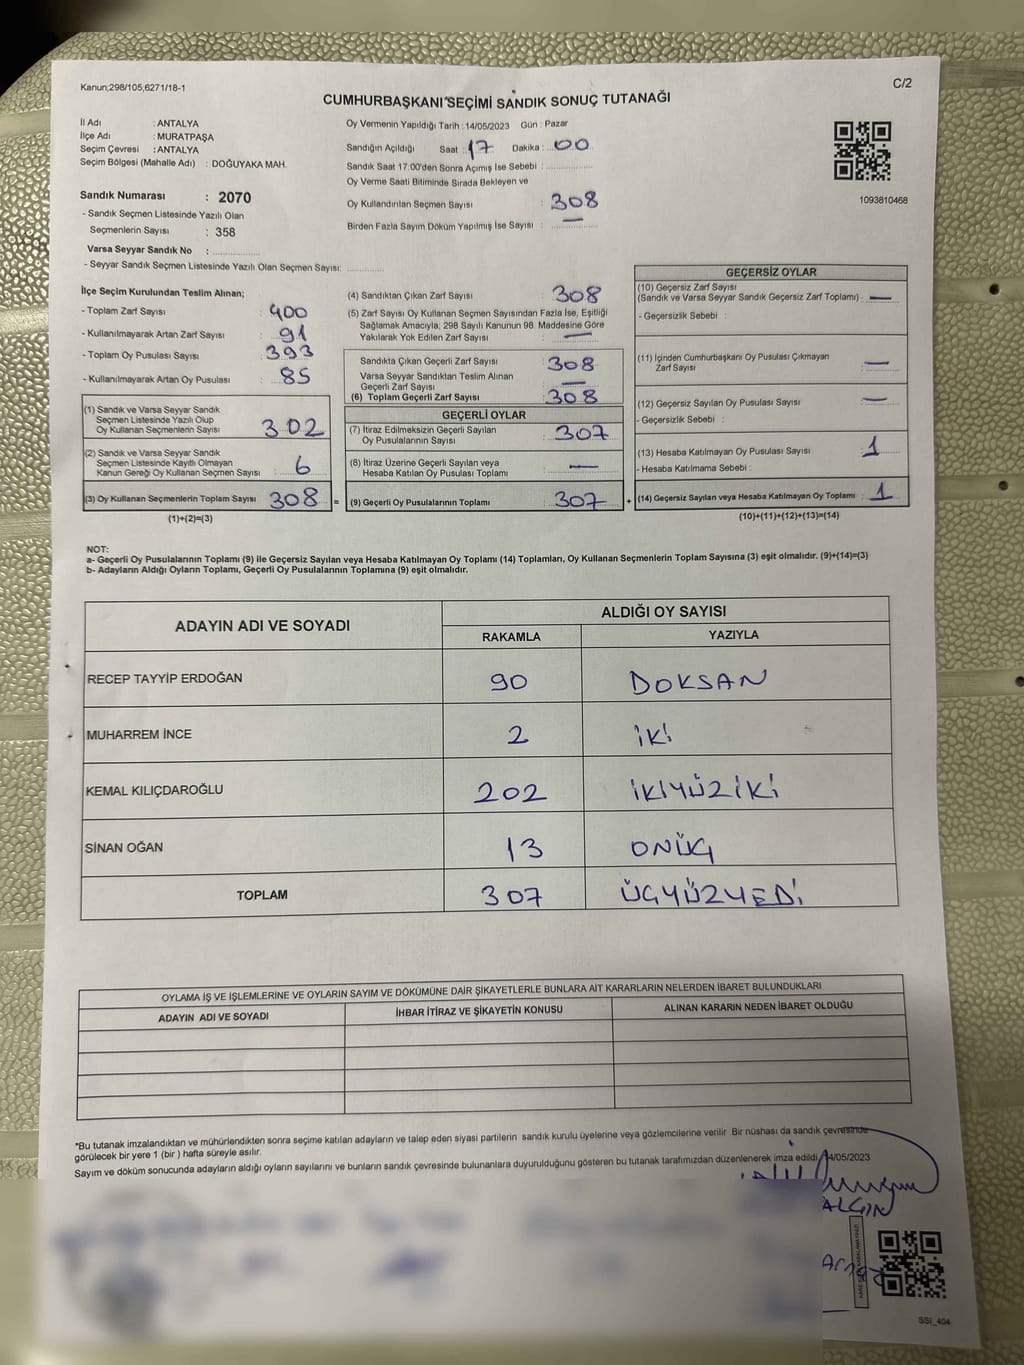 Kanun;298/105,6271/18-1
C/2
CUMHURBAŞKANI SEÇİMİ SANDIK SONUÇ TUTANAĞI
İl Adı : ANTALYA
İlçe Adı : MURATPAŞA
Seçim Çevresi : ANTALYA
Seçim Bölgesi (Mahalle Adı) : DOĞUYAKA MAH.
Sandık Numarası : 2070
- Sandık Seçmen Listesinde Yazılı Olan
Seçmenlerin Sayısı : 358
Varsa Seyyar Sandık No :
- Seyyar Sandık Seçmen Listesinde Yazılı Olan Seçmen Sayısı:
Oy Vermenin Yapıldığı Tarih : 14/05/2023 Gün : Pazar
Sandığın Açıldığı Saat : 17 Dakika : 00
Sandık Saat 17.00'den Sonra Açımış İse Sebebi :
Oy Verme Saati Bitiminde Sırada Bekleyen ve
Oy Kullandırılan Seçmen Sayısı : 308
Birden Fazla Sayım Döküm Yapılmış İse Sayısı : —
1093810468
İlçe Seçim Kurulundan Teslim Alınan;
- Toplam Zarf Sayısı : 400
- Kullanılmayarak Artan Zarf Sayısı : 91
- Toplam Oy Pusulası Sayısı : 393
- Kullanılmayarak Artan Oy Pusulası : 85
(1) Sandık ve Varsa Seyyar Sandık
Seçmen Listesinde Yazılı Olup
Oy Kullanan Seçmenlerin Sayısı 302
(2) Sandık ve Varsa Seyyar Sandık
Seçmen Listesinde Kayıtlı Olmayan
Kanun Gereği Oy Kullanan Seçmen Sayısı 6
(3) Oy Kullanan Seçmenlerin Toplam Sayısı 308 =
(1)+(2)=(3)
(4) Sandıktan Çıkan Zarf Sayısı : 308
(5) Zarf Sayısı Oy Kullanan Seçmen Sayısından Fazla İse, Eşitliği
Sağlamak Amacıyla, 298 Sayılı Kanunun 98. Maddesine Göre
Yakılarak Yok Edilen Zarf Sayısı : —
Sandıkta Çıkan Geçerli Zarf Sayısı : 308
Varsa Seyyar Sandıktan Teslim Alınan
Geçerli Zarf Sayısı : —
(6) Toplam Geçerli Zarf Sayısı : 308
GEÇERLİ OYLAR
(7) İtiraz Edilmeksizin Geçerli Sayılan
Oy Pusulalarının Sayısı : 307
(8) İtiraz Üzerine Geçerli Sayılan veya
Hesaba Katılan Oy Pusulası Toplamı : —
(9) Geçerli Oy Pusulalarının Toplamı : 307 +
GEÇERSİZ OYLAR
(10) Geçersiz Zarf Sayısı
(Sandık ve Varsa Seyyar Sandık Geçersiz Zarf Toplamı) : —
- Geçersizlik Sebebi :
(11) İçinden Cumhurbaşkanı Oy Pusulası Çıkmayan
Zarf Sayısı : —
(12) Geçersiz Sayılan Oy Pusulası Sayısı : —
- Geçersizlik Sebebi :
(13) Hesaba Katılmayan Oy Pusulası Sayısı : 1
- Hesaba Katılmama Sebebi :
(14) Geçersiz Sayılan veya Hesaba Katılmayan Oy Toplamı : 1
(10)+(11)+(12)+(13)=(14)
NOT:
a- Geçerli Oy Pusulalarının Toplamı (9) ile Geçersiz Sayılan veya Hesaba Katılmayan Oy Toplamı (14) Toplamları, Oy Kullanan Seçmenlerin Toplam Sayısına (3) eşit olmalıdır. (9)+(14)=(3)
b- Adayların Aldığı Oyların Toplamı, Geçerli Oy Pusulalarının Toplamına (9) eşit olmalıdır.
ADAYIN ADI VE SOYADI
ALDIĞI OY SAYISI
RAKAMLA YAZIYLA
RECEP TAYYİP ERDOĞAN 90 DOKSAN
MUHARREM İNCE 2 İKİ
KEMAL KILIÇDAROĞLU 202 İKİYÜZİKİ
SİNAN OĞAN 13 ONÜÇ
TOPLAM 307 ÜÇYÜZYEDİ
OYLAMA İŞ VE İŞLEMLERİNE VE OYLARIN SAYIM VE DÖKÜMÜNE DAİR ŞİKAYETLERLE BUNLARA AİT KARARLARIN NELERDEN İBARET BULUNDUKLARI
ADAYIN ADI VE SOYADI İHBAR İTİRAZ VE ŞİKAYETİN KONUSU ALINAN KARARIN NEDEN İBARET OLDUĞU
*Bu tutanak imzalandıktan ve mühürlendikten sonra seçime katılan adayların ve talep eden siyasi partilerin sandık kurulu üyelerine veya gözlemcilerine verilir. Bir nüshası da sandık çevresinde
görülecek bir yere 1 (bir) hafta süreyle asılır.
Sayım ve döküm sonucunda adayların aldığı oyların sayılarını ve bunların sandık çevresinde bulunanlara duyurulduğunu gösteren bu tutanak tarafımızdan düzenlenerek imza edildi. 14/05/2023
ALGIN
SSI_404